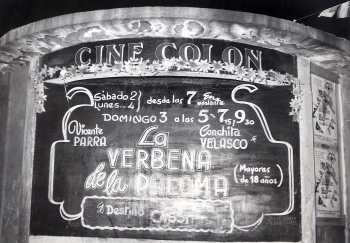 CINE COLON
Sábado 2
Lunes... 4
desde las 7
DOMINGO 3 a las 5 - 7,15 9,30
Vicente PARRA
Conchita VELASCO
La
VERBENA
de la PALOMA
(Mayores de 18 años)
El Destino